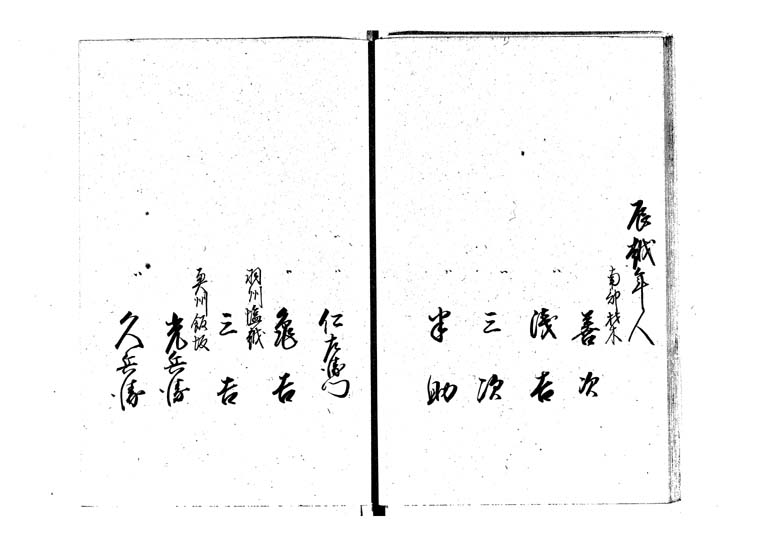 辰越年人
南部
善次
〃 浅吉
〃 三次
〃 半助
〃 仁左衛門
〃 亀吉
羽州塩越
三吉
奥州飯坂
光兵衛
〃 久兵衛